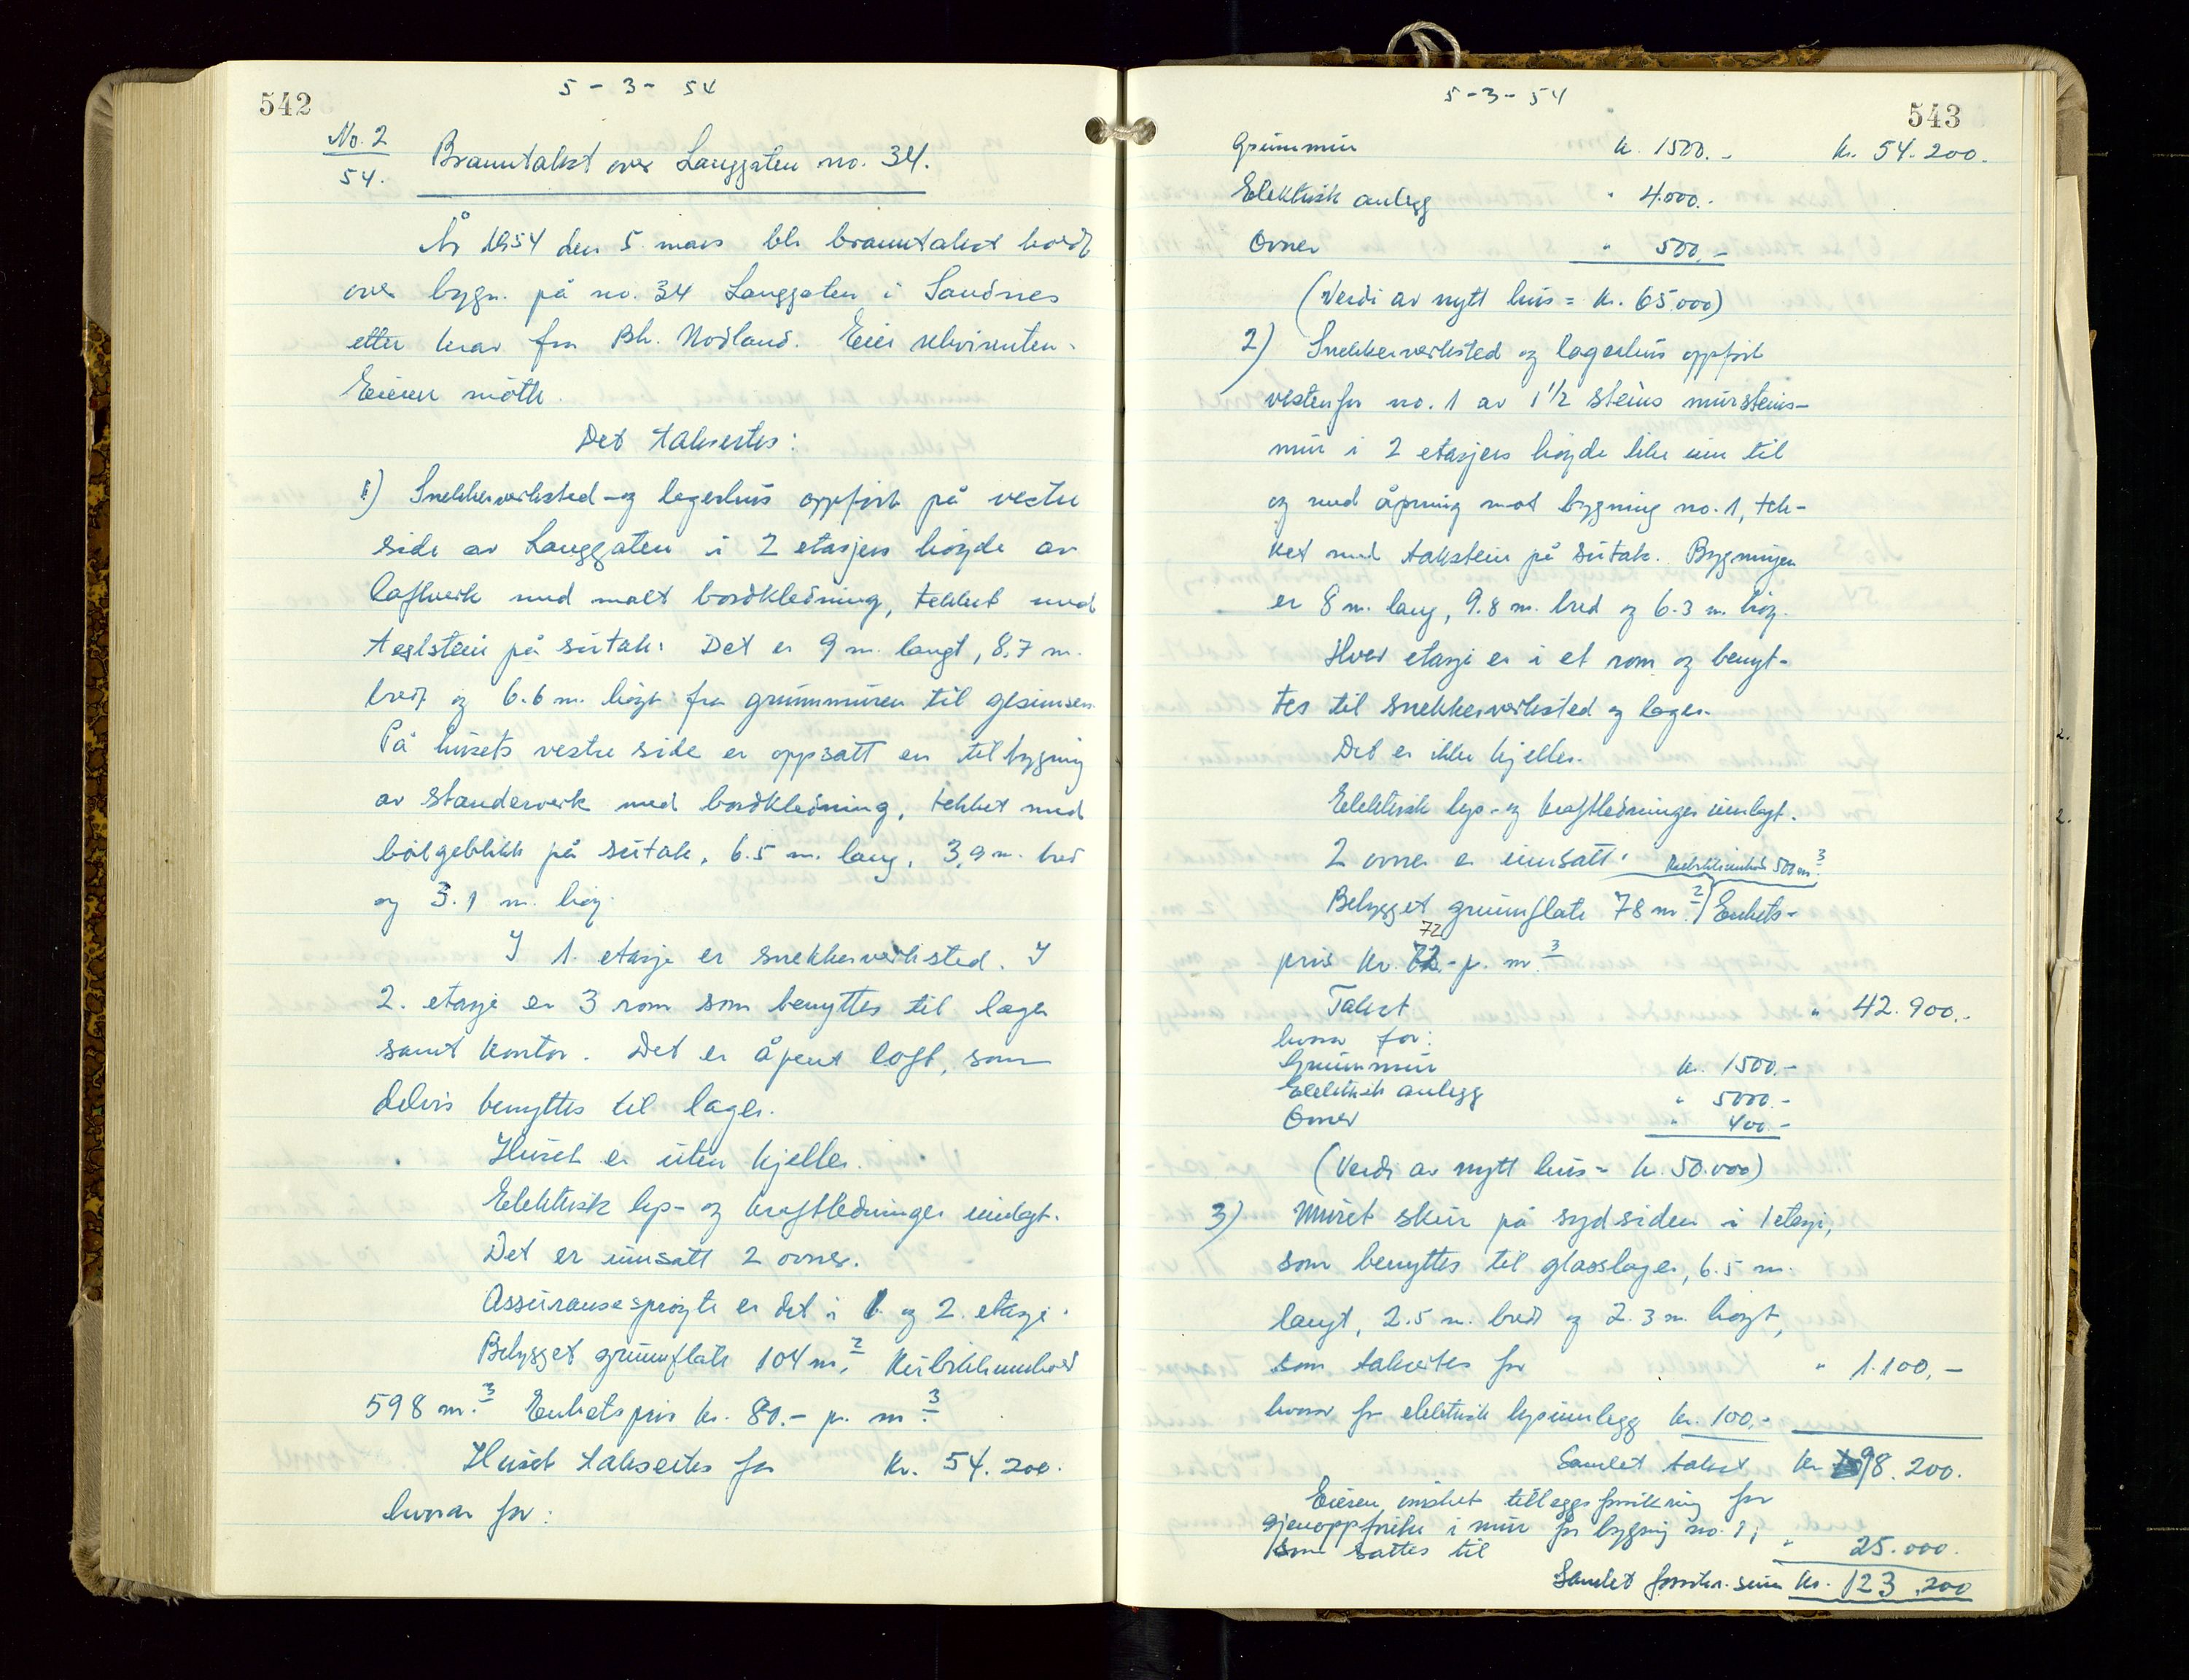 542
5 - 3 - 54
No. 2
54.
Branntakst over Langgaten no. 34.
År 1954 den 5. mars ble branntakst holdt
over bygn. på no. 34 Langgaten i Sandnes
etter krav fra Bh. Nodland. Eier rekvirenten.
Eieren møtte.
Det taksertes:
1) Snekkerverksted - og lagerhus oppført på vestre
side av Langgaten i 2 etasjers høyde av
laftverk med malt bordkledning, tekket med
teglstein på sutak. Det er 9 m. langt, 8.7 m.
bredt og 6.6 m. høgt fra grunnmuren til gesimsen.
På husets vestre side er oppsatt en tilbygning
av standerverk med bordkledning, tekket med
bølgeblikk på sutak, 6.5 m. lang, 3,9 m. bred
og 3.1 m. høg.
I 1. etasje er snekkerverksted. I
2. etasje er 3 rom som benyttes til lager
samt kontor. Det er åpent loft, som
delvis benyttes til lager.
Huset er uten kjeller.
Elektrisk lys- og kraftledninger innlagt.
Det er innsatt 2 ovner.
Assuransesprøyte er det i 1. og 2. etasje.
Bebygget grunnflate 104 m.² Kubikkinnhold
598 m.³ Enhetspris kr. 80.- pr. m.³
Huset takseres for kr. 54.200.
hvorav for:
543
5-3-54
Grunnmur kr. 1500.- kr. 54.200.
Elektrisk anlegg " 4.000.-
Ovner " 500.-
(Verdi av nytt hus = kr. 65.000)
2) Snekkerverksted og lagerhus oppført
vestenfor no. 1 av 1 1/2 steins mursteins-
mur i 2 etasjers høyde like inn til
og med åpning mot bygning no. 1, tek-
ket med takstein på sutak. Bygningen
er 8 m. lang, 9.8 m. bred og 6.3 m. høg.
Hver etasje er i et rom og benyt-
tes til snekkerverksted og lager.
Det er ikke kjeller.
Elektrisk lys- og kraftledninger innlagt.
2 ovner er innsatt. Kubikkinnhold 500 m.³
Bebygget grunnflate 78 m.² Enhets-
72
pris kr. 72.- pr. m.³
Takst " 42.900.-
hvorav for:
Grunnmur kr. 1500.-
Elektrisk anlegg " 5000.-
Ovner " 400.-
(Verdi av nytt hus = kr. 50.000)
3) Muret skur på sydsiden i 1 etasje,
som benyttes til glasslager, 6.5 m.
langt, 2.5 m. bredt og 2.3 m. høgt,
som takseres for " 1.100.-
hvorav for elektrisk lysinnlegg kr. 100.-
Samlet takst kr. 98.200.
Eieren ønsket tilleggsforsikring for
gjenoppførelse i mur for bygning no. 1,
som sattes til " 25.000.
Samlet forsikr. sum kr. 123.200